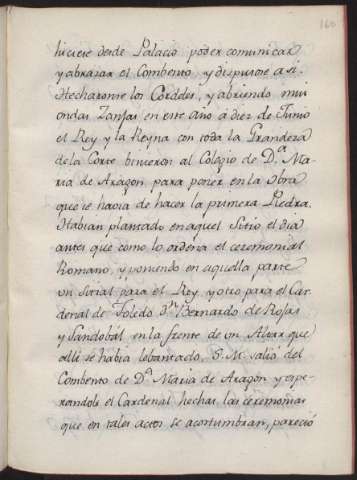 160
hiciese desde Palacio poder comunicar
y abrazar el Combento, y dispusose asi.
Hecharonse los Cordeles, y abriendo mui
ondas Zanjas en este año á diez de Junio
el Rey y la Reyna con toda la Grandeza
de la Corte binieron al Colegio de D.ª Ma
ria de Aragon para poner en la obra
que se havia de hacer la primera Piedra.
Habian plantado en aquel Sitio el dia
antes que como lo ordena el ceremonial
Romano, y poniendo en aquella parte
un sitial para el Rey y otro para el Car
denal de Toledo Dn Bernardo de Rojas
y Sandobál en la frente de un Altar que
alli se habia lebantado, S. M. salio del
Combento de D.ª Maria de Aragon y espe
randole el Cardenal hechas las ceremonias
que en tales actos se acostumbran, pareció